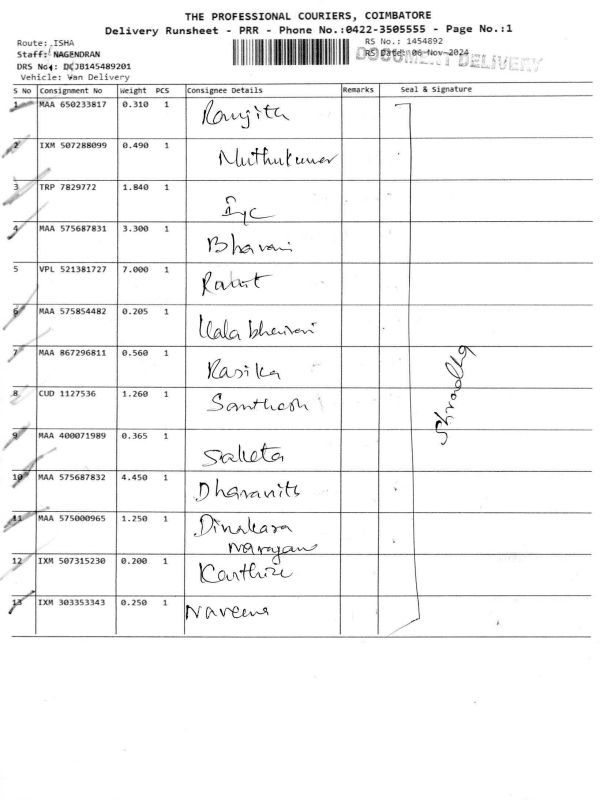 THE PROFESSIONAL COURIERS, COIMBATORE
Delivery Runsheet - PRR - Phone No.:0422-3505555 - Page No.:1
Route: ISHA
RS No.: 1454892
Staff: NAGENDRAN
RS Date: 06-Nov-2024
DOCUMENT DELIVERY
DRS No.: DCJB145489201
Vehicle: Van Delivery
S No Consignment No Weight PCS Consignee Details Remarks Seal & Signature
1 MAA 650233817 0.310 1 Ranjita
2 IXM 507288099 0.490 1 Muthukumar
3 TRP 7829772 1.840 1
4 MAA 575687831 3.300 1 Bhavani
5 VPL 521381727 7.000 1
6 MAA 575854482 0.205 1
7 MAA 867296811 0.560 1 Rasika
8 CUD 1127536 1.260 1 Santhosh
9 MAA 400071989 0.365 1 Saketa
10 MAA 575687832 4.450 1
11 MAA 575000965 1.250 1 Dinakara
Narayan
12 IXM 507315230 0.200 1
13 IXM 303353343 0.250 1 Naveena